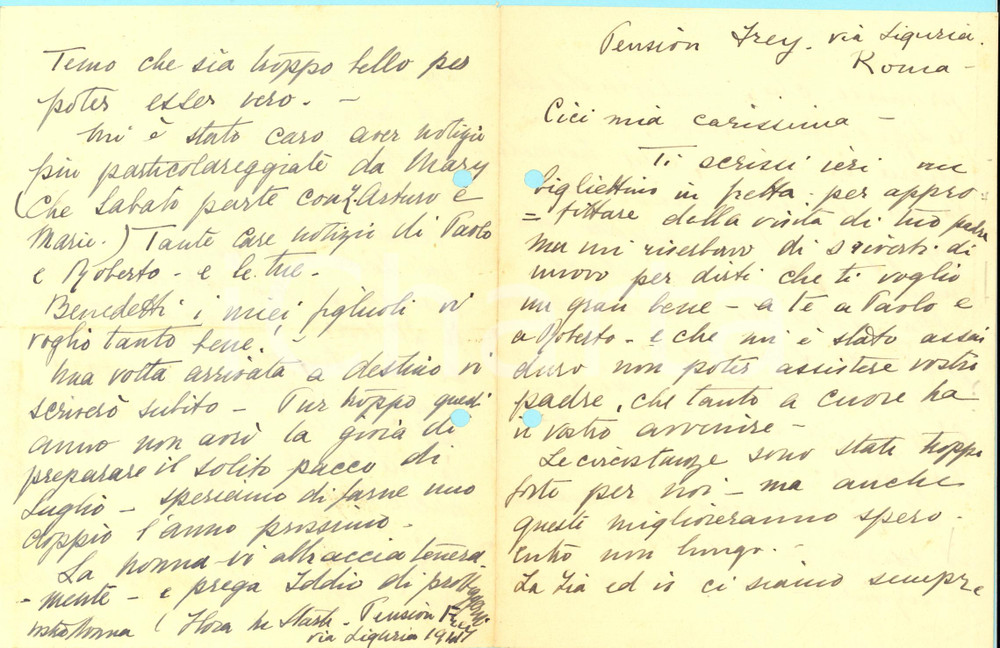 Pension Frey. via Liguria.
Roma -
Cici mia carissima -
Ti scrissi ieri un
bigliettino in fretta per appro-
= fittare della visita di tuo padre
ma mi riserbavo di scriverti di
nuovo per dirti che ti voglio
un gran bene - a te a Paolo e
a Roberto - e che mi è stato assai
duro non poter assistere vostro
padre, che tanto a cuore ha
il vostro avvenire -
Le circostanze sono state troppo
forti per noi - ma anche
queste miglioreranno spero.
entro non lungo. -
La Zia ed io ci siamo sempre
Temo che sia troppo bello per
poter esser vero. -
Mi è stato caro aver notizie
più particolareggiate da Mary
(che Sabato parte con Z. Arturo e
Marie.) Tante care notizie di Paolo
e Roberto - e le tue.
Benedetti i miei figliuoli vi
voglio tanto bene.
Una volta arrivata a destino vi
scriverò subito - Pur troppo quest'
anno non avrò la gioia di
preparare il solito pacco di
Luglio - speriamo di farne uno
doppio l'anno prossimo -
La nonna vi abbraccia tenera-
- mente - e prega Iddio di proteggervi
vostra Nonna ( Pension Frey
via Liguria 1941
Chart